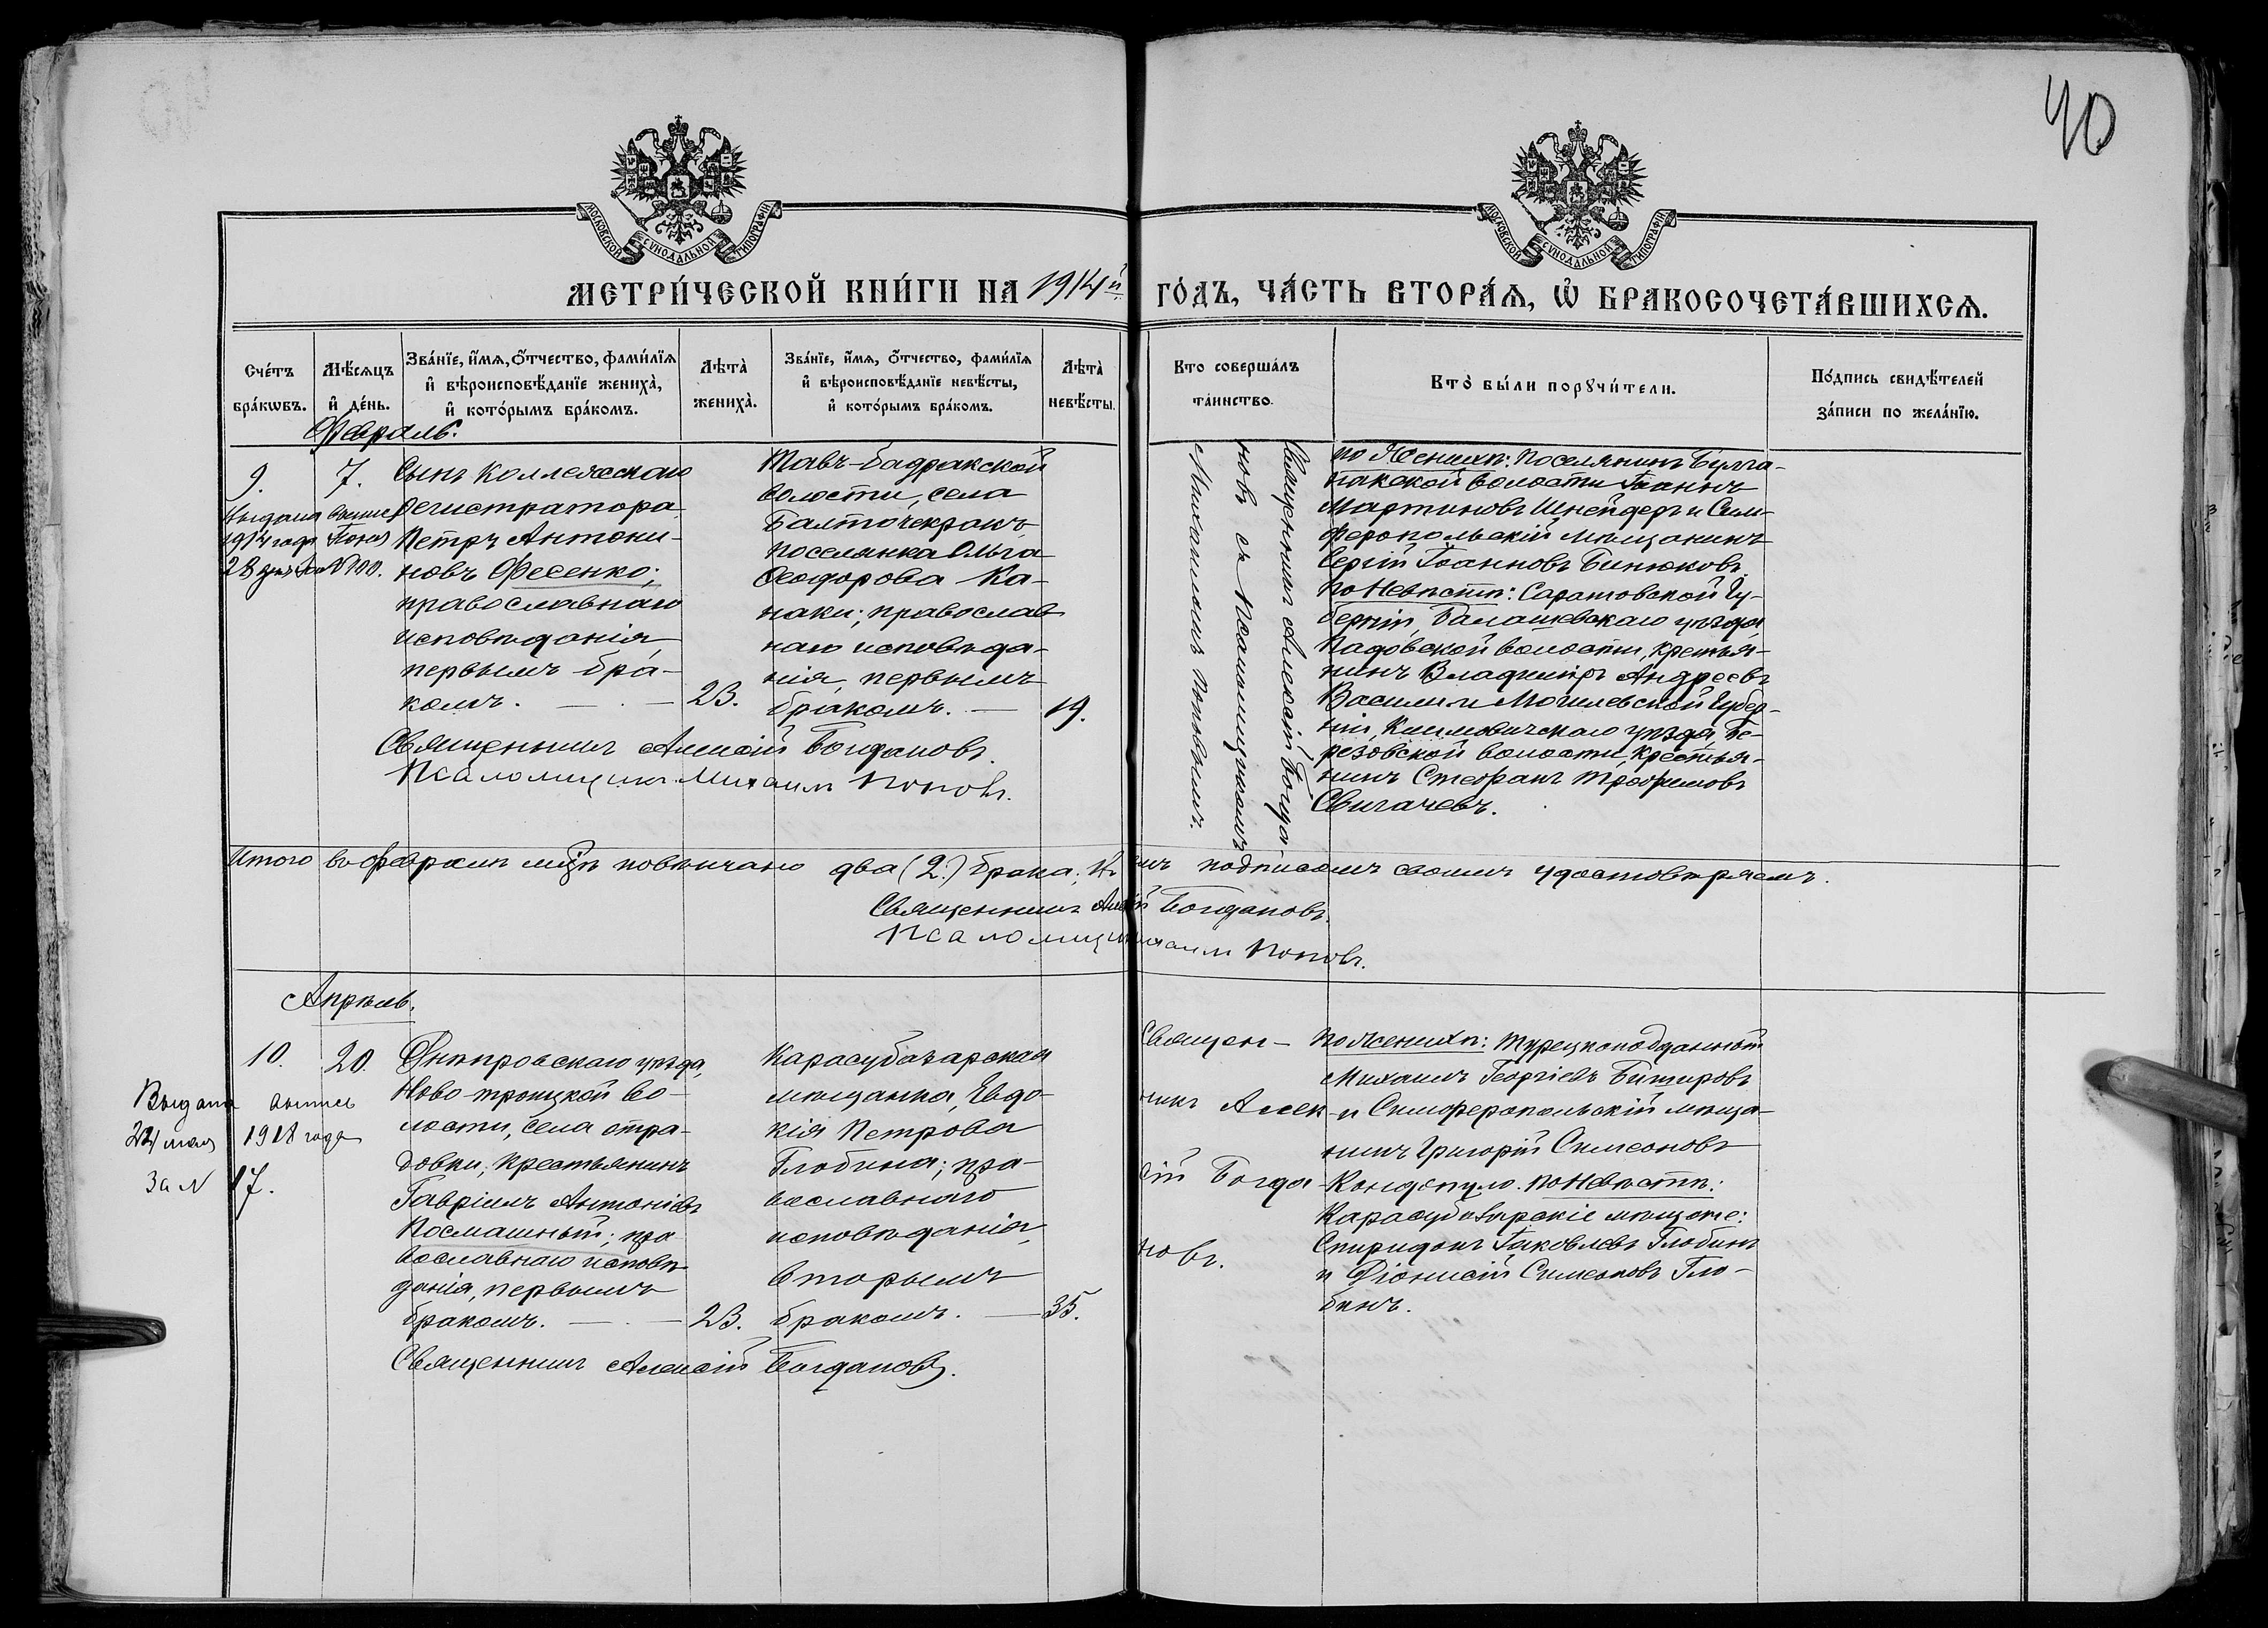 40
МОСКОВСКОЙ СѴНОДАЛЬНОЙ ТИПОГРАФІИ
МОСКОВСКОЙ СѴНОДАЛЬНОЙ ТИПОГРАФІИ
МЕТРИ́ЧЕСКОЙ КНИ́ГИ НА 1914й ГО́ДЪ, ЧА́СТЬ ВТОРА́Ѧ, Ѽ БРАКОСОЧЕТА́ВШИХСѦ.
Сче́тъ бра́кѡвъ.
Мѣ́сѧцъ и҆ де́нь.
Зва́нїе, и҆́мѧ, ѻ҆́тчество, фами́лїѧ
и҆ вѣроисповѣ́данїе жениха̀,
и҆ кото́рымъ бра́комъ.
Лѣта̀ жениха̀.
Зва́нїе, и҆́мѧ, ѻ҆́тчество, фами́лїѧ
и҆ вѣроисповѣ́данїе невѣ́сты,
и҆ кото́рымъ бра́комъ.
Лѣта̀ невѣ́сты.
Кто соверша́лъ та́инство.
Кто̀ бы́ли порꙋчи́тели.
По́дпись свидѣ́телей
за́писи по жела́нїю.
Февраль.
9.
7.
Выдана выпись
1914 года Іюня
28 дня за № 100.
Сынъ Коллежскаго
регистратора
Петръ Антони-
новъ Фесенко;
православнаго
исповѣданія,
первымъ бра-
комъ. — 23.
Тавъ-Бадракской
волости, села
Балточекракъ,
поселянка Ольга
Ѳеодорова Ка-
наки; православ
наго исповѣда-
нія, первымъ
бракомъ. — 19.
Священникъ Алексій Богдановъ.
Псаломщикъ Михаилъ Поповъ.
Священникъ Алексій Богда-
новъ съ Псаломщикомъ
Михаиломъ Поповымъ.
По Женихѣ: поселянинъ Булга-
накской волости Іоаннъ
Мартиновъ Шнейдеръ и Сим-
феропольскій мѣщанинъ
Сергій Іоанновъ Бинюковъ,
по Невѣстѣ: Саратовской Гу-
берніи, Балашевскаго уѣзда,
Падовской волости, крестья-
нинъ Владиміръ Андреевъ
Василии и Могилевской Губер-
ніи, Климовичскаго уѣзда, Бе-
резовской волости, крестья-
нинъ Стефанъ Трофимовъ
Свигачевъ.
Итого въ февралѣ мцѣ повѣнчано два (2.) брака; въ чемъ подписомъ своимъ удостовѣряемъ.
Священникъ Алексій Богдановъ.
Псаломщикъ Михаилъ Поповъ.
Апрѣль.
10.
20.
Выдана выпись
24 мая 1918 года
за № 17.
Днѣпровскаго уѣзда,
Ново-троицкой во-
лости, села Отра-
довки, крестьянинъ
Гавріилъ Антоніевъ
Космашный; пра
вославнаго исповѣ
данія, первымъ
бракомъ. — 23.
Карасубазарская
мѣщанка, Евдо-
кія Петрова
Глобина; пра-
вославнаго
исповѣданія,
вторымъ
бракомъ. — 35.
Священникъ Алексій Богдановъ.
Священ-
никъ Алек-
сій Богда
новъ.
По Женихѣ: Турецкоподданный
Михаилъ Георгіевъ Битировъ
и Симферопольскій мѣща-
нинъ Григорій Симеоновъ
Кондопуло. По Невѣстѣ:
Карасубазарскіе мѣщане:
Спиридонъ Іаковлевъ Глобинъ
и Діонисій Симеоновъ Гло-
бинъ.